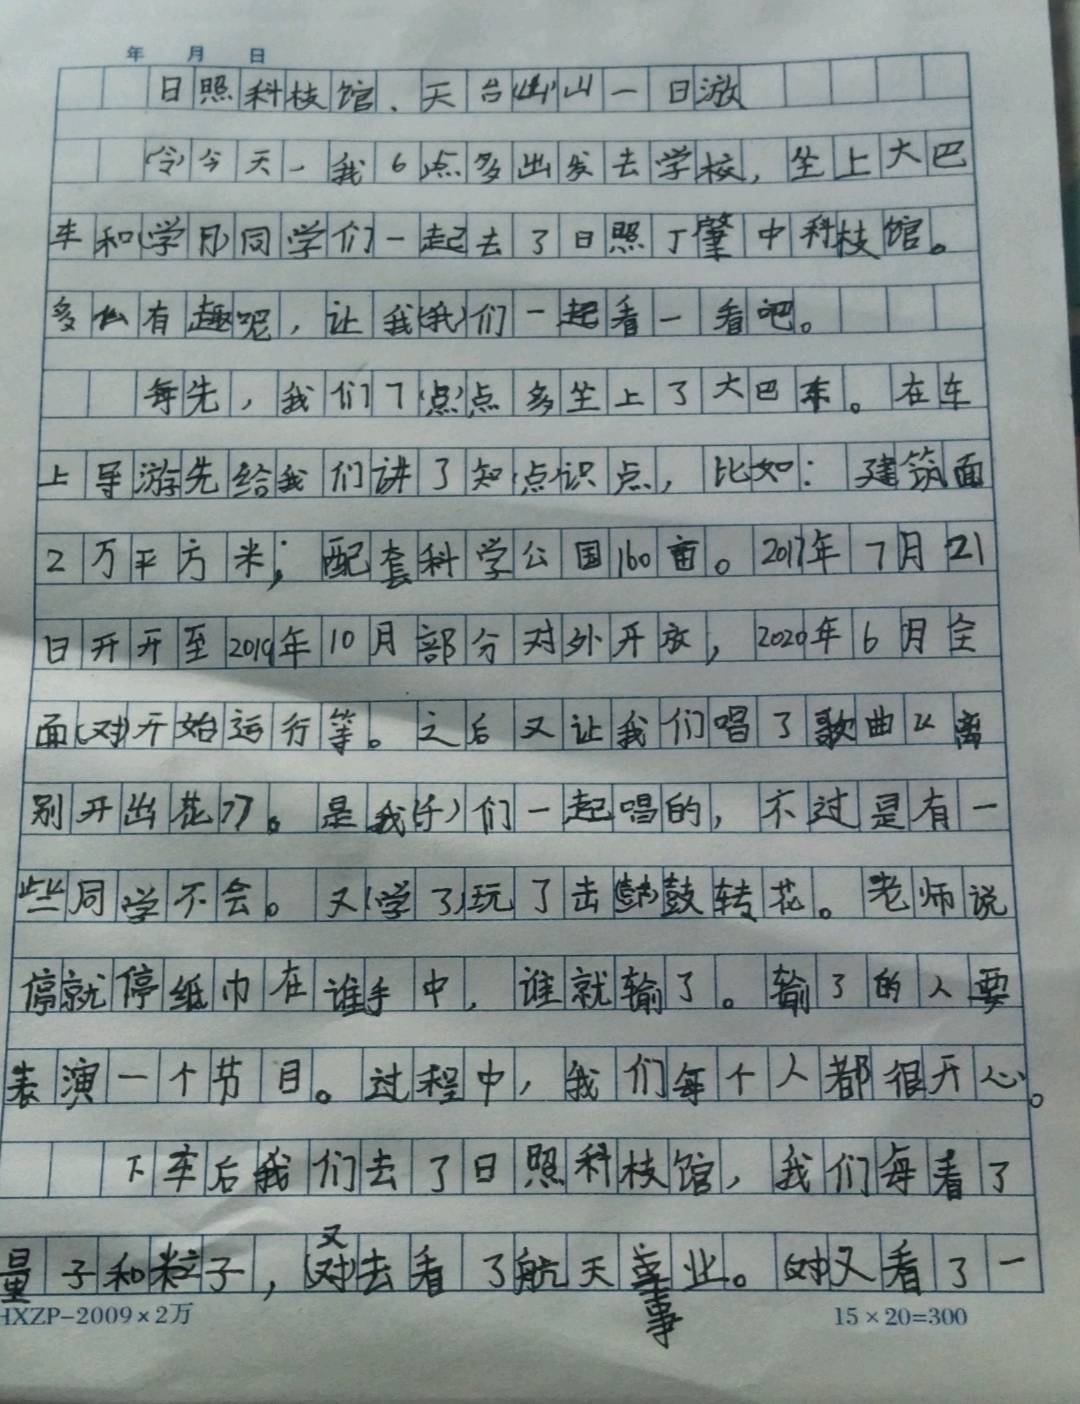 年 月 日
日照科枝馆、天台山一日游
(令)今天,我6点多出发去学校,坐上大巴
车和(学月)同学们一起去了日照丁肇中科枝馆。
多么有趣呢,让我(我)们一起看一看吧。
每先,我们7(点)点多坐上了大巴车。在车
上导游先给我们讲了知(点)识点,比如:建筑面
2万平方米;配套科学公国160亩。2017年7月21
日开开至2019年10月部分对外开放,2020年6月全
面(对)开始运行等。之后又让我们唱了歌曲《离
别开出花》。是我(千)们一起唱的,不过是有一
些同学不会。又(学了)玩了击(鼓)鼓转花。老师说
停就停纸巾在谁手中,谁就输了。输了的人要
表演一个节目。过程中,我们每个人都很开心。
下车后我们去了日照科枝馆,我们每看了
量子和粒子,(对)又去看了航天事业。(对)又看了一
HXZP-2009×2万 15×20=300